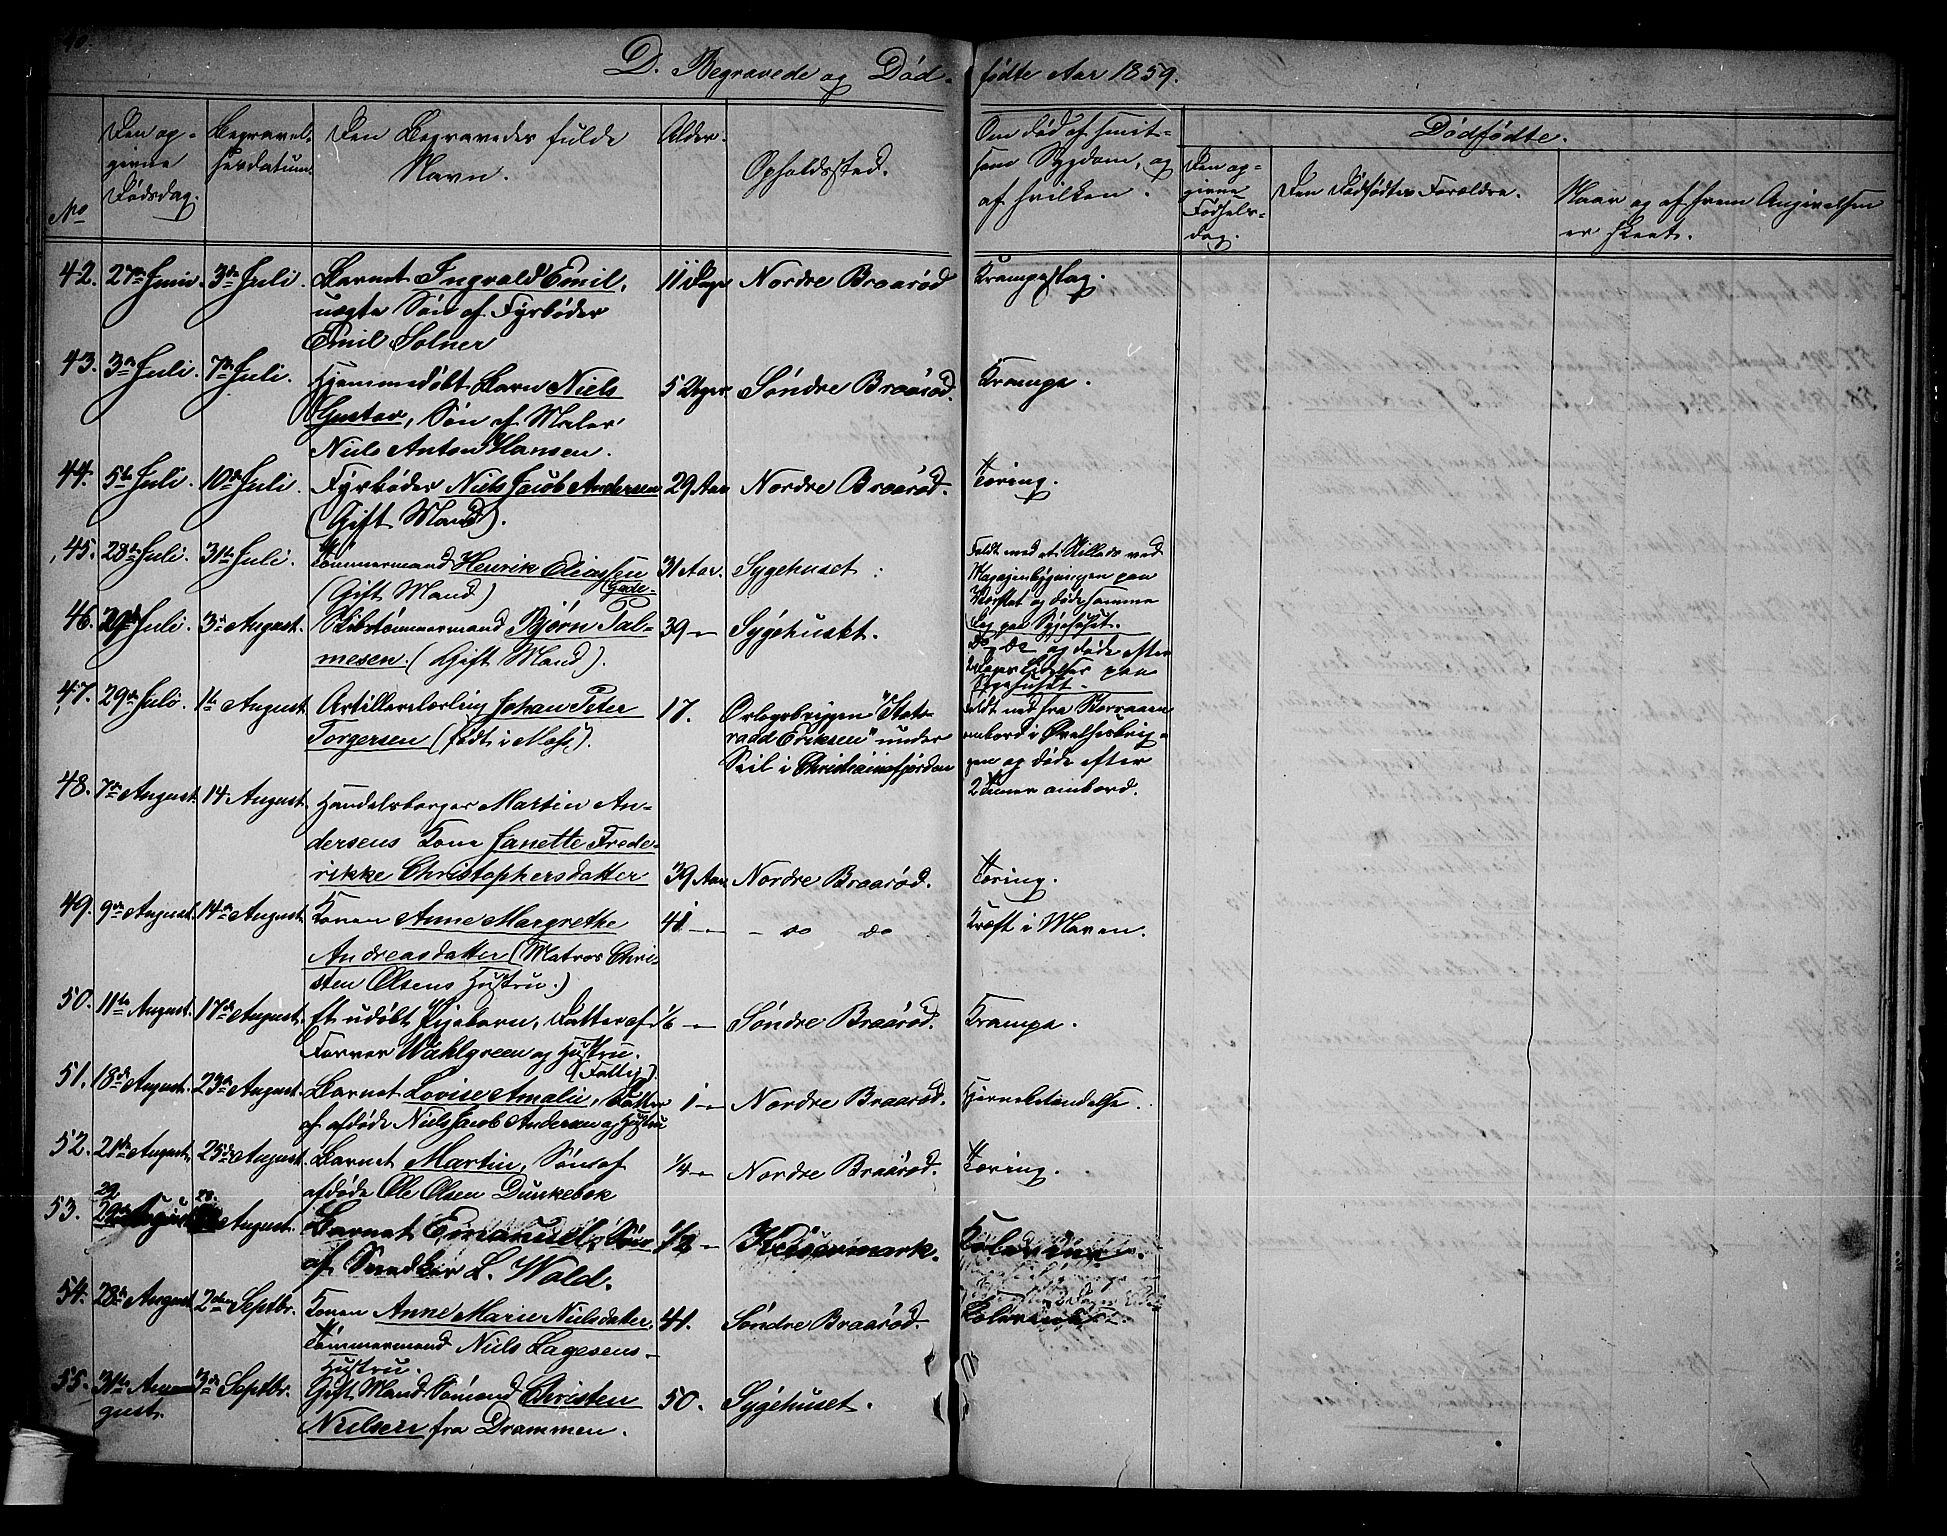 D. Begravede og Død-
fødte Aar 1859.
No
Den op-
givne
Dødsdag.
Begravel-
sesdatum.
Den Begravedes fulde
Navn.
Alder.
Opholdssted.
Om død af smit-
som Sygdom, og
af hvilken.
Dødfødte.
Den op-
givne
Fødsels-
dag.
Den Dødfødtes Forældre.
Naar og af hvem Angivelsen
er skeet.
42. 27de Juni 3die Juli. Barnet Ingvald Emil, 11 Dage Nordre Braarød Krampeslag.
uægte Søn af Fyrbøder
Emil Solner
43. 3die Juli. 7de Juli. Hjemmedøbt Barn Niels 5 Uger Søndre Braarød. Krampe.
Gustav, Søn af Maler
Niels Anton Hansen.
44. 5te Juli 10de Juli. Fyrbøder Niels Jacob Andersen 29 Aar Nordre Braarød. Tæring.
(Gift Mand).
45. 28de Juli. 31te Juli. Tømmermand Henrik Eliassen 31 Aar. Sygehuset.
(Gift Mand)
Faldt med et Stillads ved
Magazinbygningen paa
Værftet og døde samme
Dag paa Sygehuset.
46. 29de Juli. 3die August. Skibstømmermand Bjørn Pal- 39 - Sygehuset.
mesen. (Gift Mand).
Do Do og døde efter
paa
Sygehuset.
47. 29de Juli. 1te August Artillerilærling Johan Peter 17. Orlogsbriggen "Stats-
Torgersen (født i Moss).
raad Eriksen" under
Seil i Christianiafjorden
Faldt ned fra Storraaen
ombord i Øvelsesbrig-
gen og døde efter
2 Timer ombord.
48. 7de August. 14 August. Handelsborger Martin An-
dersens Kone Janette Frede-
rikke Christophersdatter 39 Aar Nordre Braarød. Tæring.
49. 9de August. 14de August. Konen Anne Margrethe 41 - - do do Kræft i Maven.
Andreasdatter (Matros Chri-
sten Olsens Hustru.)
50. 11te August. 17de August. Et udøbt Pigebarn, Datter af 1/6 - Søndre Braarød. Krampe.
Farver Wahlgreen og Hustru.
(Fattig).
51. 18de August. 23de August. Barnet Lovise Amalie, Datter 1 - Nordre Braarød. Hjernebetændelse.
af afdøde Niels Jacob Andersen og Hustru
52. 21de August. 25de August. Barnet Martin, Søn af 1/4 - Nordre Braarød. Tæring.
afdøde Ole Olsen Dunkebek
53. August August. Barnet Emanuel, Søn 1/2 - Keisermark. Kolerine.
af Snedker L. Wold.
54. 28de August 2den Septbr. Konen Anne Marie Nielsdatter, 41. Søndre Braarød.
Tømmermand Niels Lagesens
Hustru.
55. 31te Au- 3die Septbr. Gift Mand Sømand Christen 50. Sygehuset.
gust.
Nielsen fra Drammen.